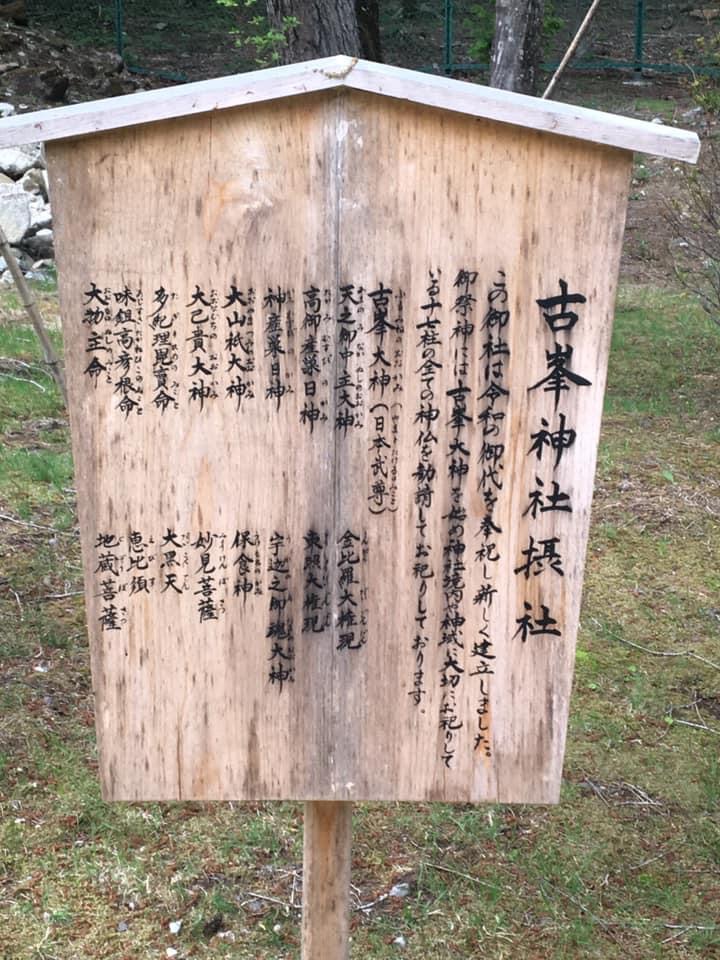 古峯神社摂社
この御社は令和の御代を奉祀し新しく建立しました。
御祭神には古峯大神を始め神社境内や神域に大切にお祀りして
いる十七柱の全ての神仏を勧請してお祀りしております。
古峯大神(日本武尊)
天之御中主大神
高御産巣日神
神産巣日神
大山祇大神
大己貴大神
多紀理毘賣命
味鉏高彦根命
大物主命
金比羅大権現
東照大権現
宇迦之御魂大神
保食神
妙見菩薩
大黒天
恵比須
地蔵菩薩